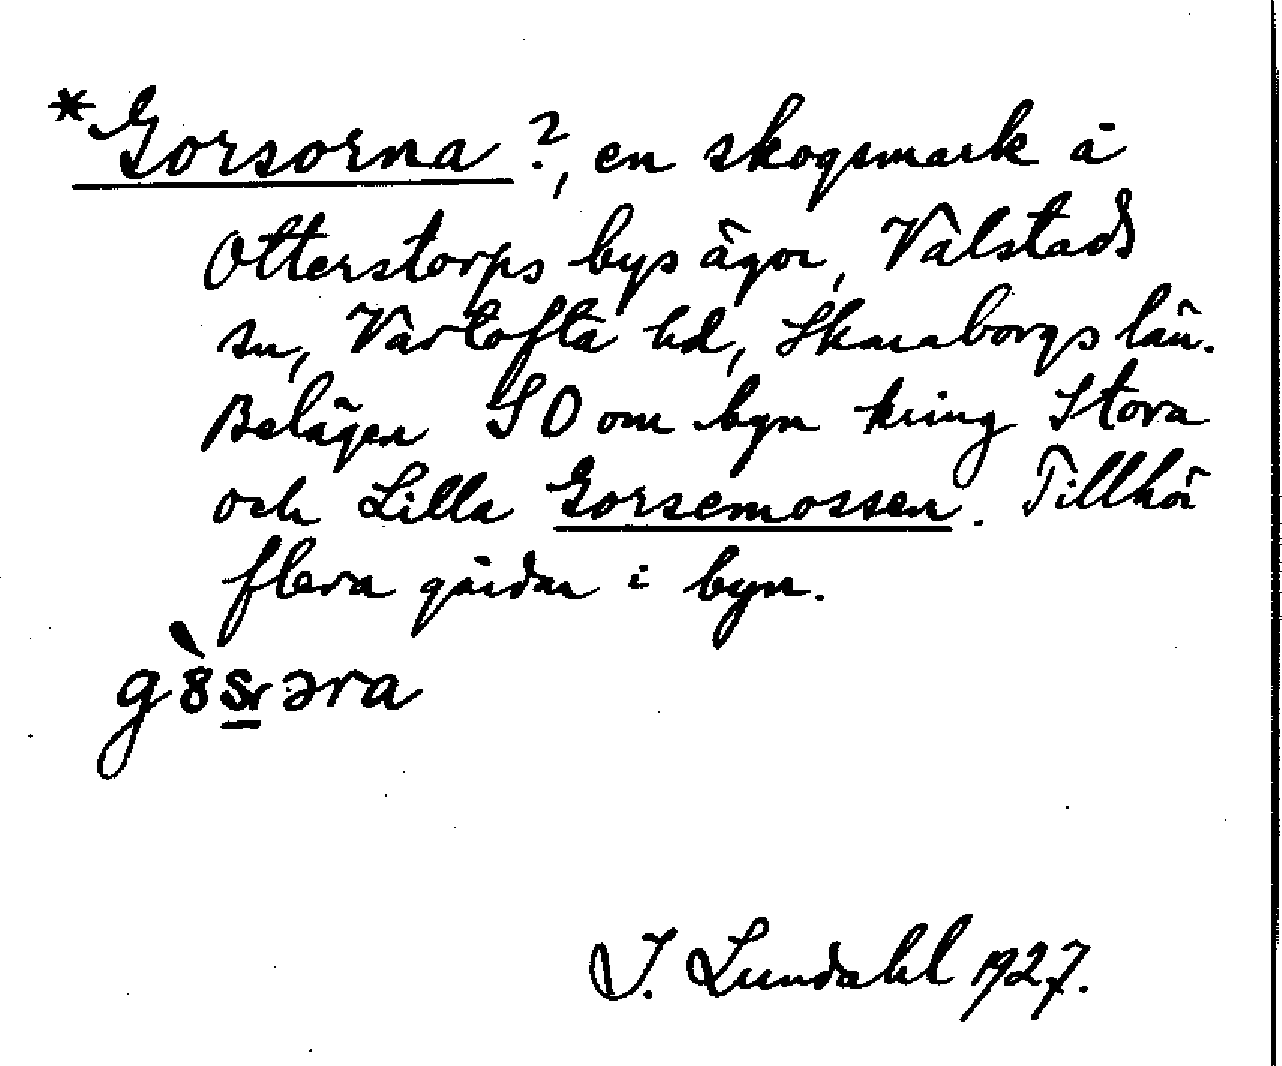 *Gorsorna ?, en skogsmark å
Otterstorps bys ägor, Valstads
sn, Vartofta hd, Skaraborgs län.
Belägen SO om byn kring Stora
och Lilla Gorsemossen. Tillhör
flera gårdar i byn.
I. Lundahl 1927.